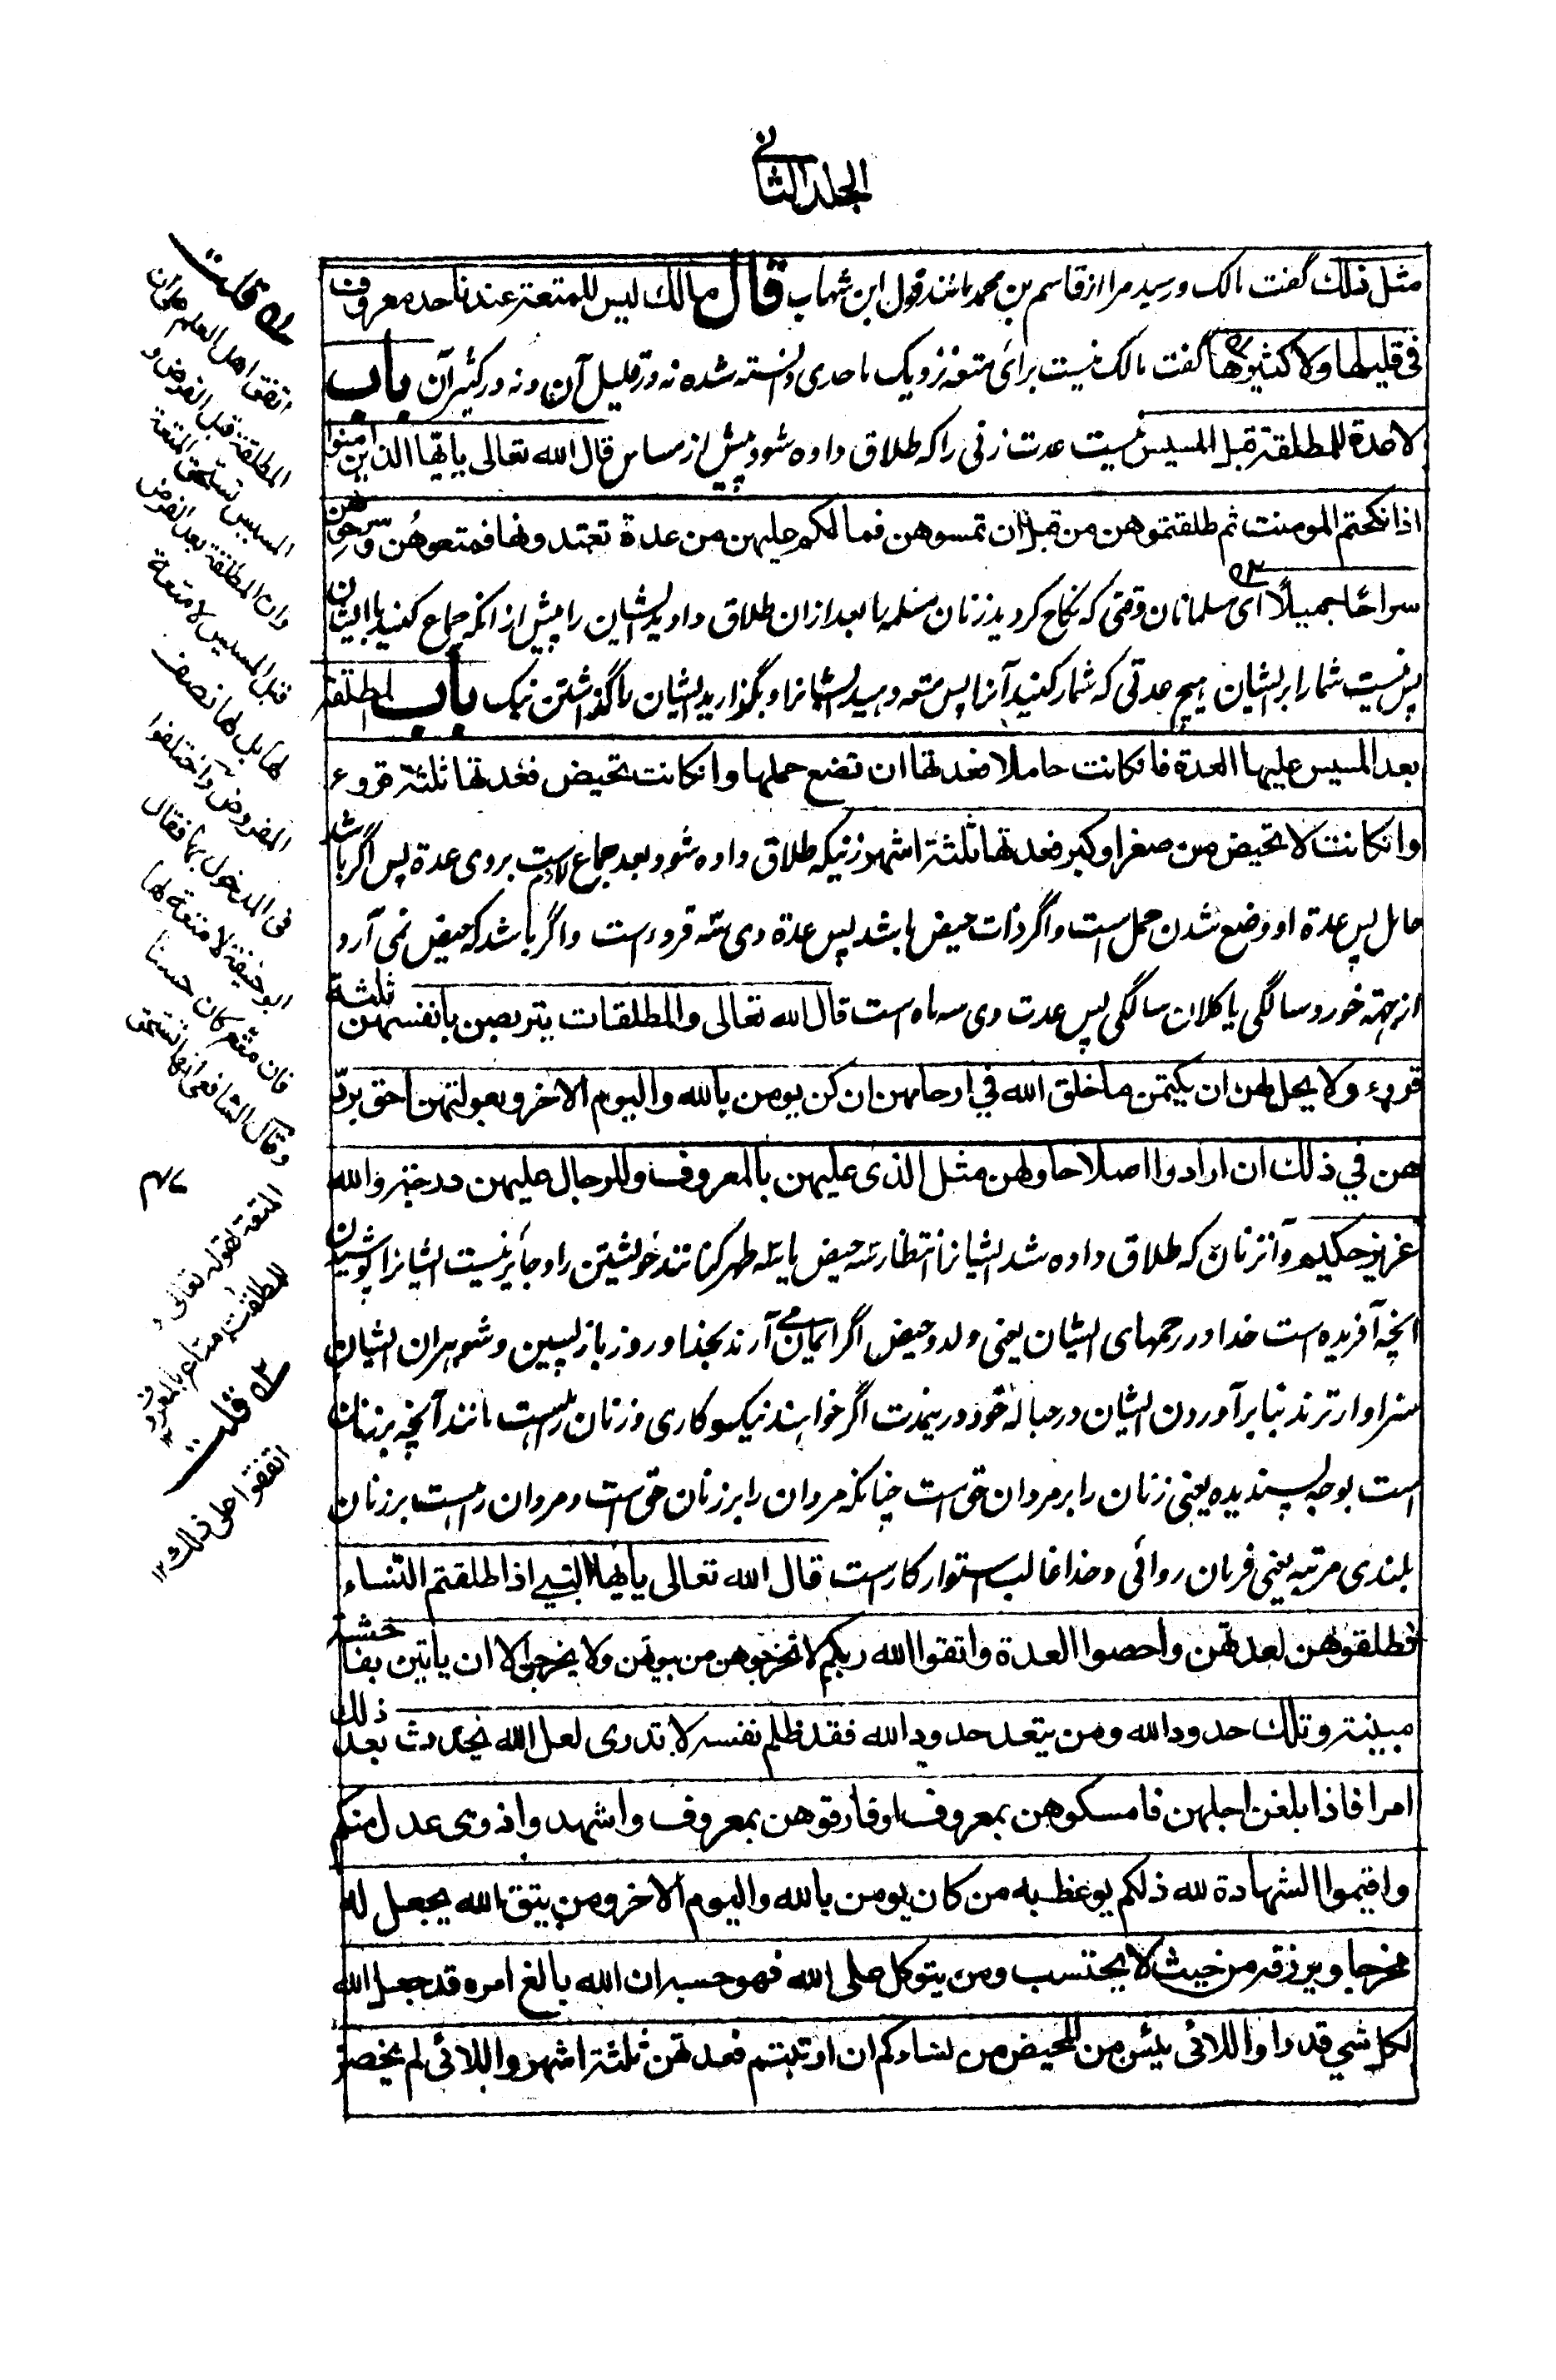 الجلد الثانی
مثل ذلك گفت مالک و رسید مرا از قاسم بن محمد مانند قول ابن شهاب قال مالك ليس للمتعة عندنا حد معروف
في قليلها ولا كثيرها گفت مالک نیست برای متعه نزدیک ما حدی دانسته شده نه در قلیل آن و نه در کثیر آن باب
لا عدة للمطلقة قبل المسيس نیست عدت زنی را که طلاق داده شود پیش از مساس قال الله تعالى يا يها الذين امنوا
اذا نكحتم المومنت ثم طلقتموهن من قبل ان تمسوهن فما لكم عليهن من عدة تعتدونها فمتعوهن وسرحوهن
سراحا جميلا ای مسلمانان وقتی که نکاح کردید زنان مسلمه را بعد ازان طلاق دادید ایشان را پیش از انکه جماع کنید با ایشان
پس نیست شما را بر ایشان هیچ عدتی که شمار کنید آنرا پس متعه دهید ایشانرا و بگذارید ایشان را گذاشتن نیک باب المطلقة
بعد المسيس عليها العدة فان كانت حاملا فعدتها ان تضع حملها وانكانت تحيض فعدتها ثلثة قروء
وانكانت لا تحيض من صغر او كبر فعدتها ثلثة اشهر زنیکه طلاق داده شود بعد جماع لازم است بروی عدة پس اگر باشد
حامل پس عدة او وضع شدن حمل است و اگر ذات حیض باشد پس عدة وی سه قروء است و اگر باشد که حیض نمی آرد
از جهته خورد سالگی یا کلان سالگی پس عدت وی سه ماه است قال الله تعالى والمطلقات يتربصن بانفسهن ثلثة
قروء ولا يحل لهن ان يكتمن ما خلق الله في ارحامهن ان كن يومن بالله واليوم الاخر وبعولتهن احق برد
هن في ذلك ان ارادوا اصلاحا ولهن مثل الذى عليهن بالمعروف وللرجال عليهن درجة والله
عزيز حكيم و آنزنان که طلاق داده شد ایشانرا انتظار سه حیض یا سه طهر کنانند خویشتن را و جائز نیست ایشانرا پوشیدن
انچه آفریده است خدا در رحمهای ایشان یعنی ولد و حیض اگر ایمان می آرند بخدا و روز باز پسین و شوهران ایشان
سزاوار ترند بنا بر آوردن ایشان در حباله خود درینمدت اگر خواهند نیکوکاری و زنان راست مانند آنچه بر زنان
است بوجه پسندیده یعنی زنان را بر مردان حق است چنانکه مردان را بر زنان حق است و مردان راست بر زنان
بلندی مرتبه یعنی فرمان روائی و خدا غالب استوار کار است قال الله تعالى يا يها النبي اذا طلقتم النساء
فطلقوهن لعدتهن واحصوا العدة واتقوا الله ربكم لا تخرجوهن من بيوتهن ولا يخرجن الا ان ياتين بفاحشة
مبينة وتلك حدود الله ومن يتعد حدود الله فقد ظلم نفسه لا تدرى لعل الله يحدث بعد ذلك
امرا فاذا بلغن اجلهن فامسكوهن بمعروف او فارقوهن بمعروف واشهدوا ذوى عدل منكم
واقيموا الشهادة لله ذلكم يوعظ به من كان يومن بالله واليوم الاخر ومن يتق الله يجعل له
مخرجا ويرزقه من حيث لا يحتسب ومن يتوكل على الله فهو حسبه ان الله بالغ امره قد جعل الله
لكل شي قدرا واللائى يئسن من المحيض من نساءكم ان ارتبتم فعدتهن ثلثة اشهر واللائى لم يحضن
قلت
اتفق اهل العلم على ان
المطلقة قبل الفرض و
المسيس تستحق المتعة
وان المطلقة بعد الفرض
قبل المسيس لا متعة
لها بل لها نصف
المفروض واختلفوا
فى المدخول بها فقال
ابو حنيفة لا متعة لها
فان متع كان حسنا
وقال الشافعى انها تستحق
المتعة لقوله تعالى و
للمطلقت متاع بالمعروف
قلت
اتفقوا على ذلك ١٢